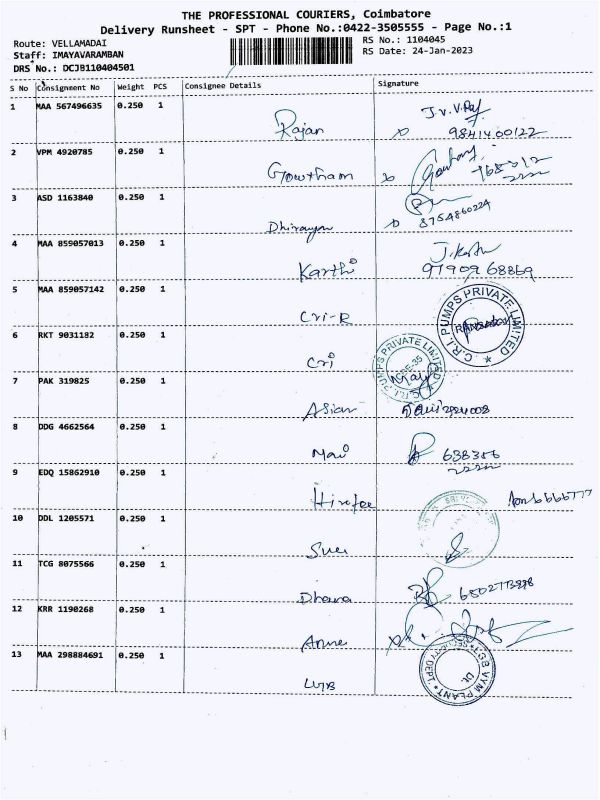 THE PROFESSIONAL COURIERS, Coimbatore
Delivery Runsheet - SPT - Phone No.:0422-3505555 - Page No.:1
Route: VELLAMADAI RS No.: 1104045
Staff: IMAYAVARAMBAN RS Date: 24-Jan-2023
DRS No.: DCJB110404501
S No Consignment No Weight PCS Consignee Details Signature
1 MAA 567496635 0.250 1 Rajan 9841400122
2 VPM 4920785 0.250 1 Gowtham
3 ASD 1163840 0.250 1 8754860224
4 MAA 859057013 0.250 1 Karthi 9790968869
5 MAA 859057142 0.250 1 Cri-R C.R.I. PUMPS PRIVATE LIMITED
6 RKT 9031182 0.250 1 Cri C.R.I. PUMPS PRIVATE LIMITED
7 PAK 319825 0.250 1 Asian
8 DDG 4662564 0.250 1 Mani 638356
9 EDQ 15862910 0.250 1
10 DDL 1205571 0.250 1
11 TCG 8075566 0.250 1 Dhara
12 KRR 1190268 0.250 1
13 MAA 298884691 0.250 1 LGB